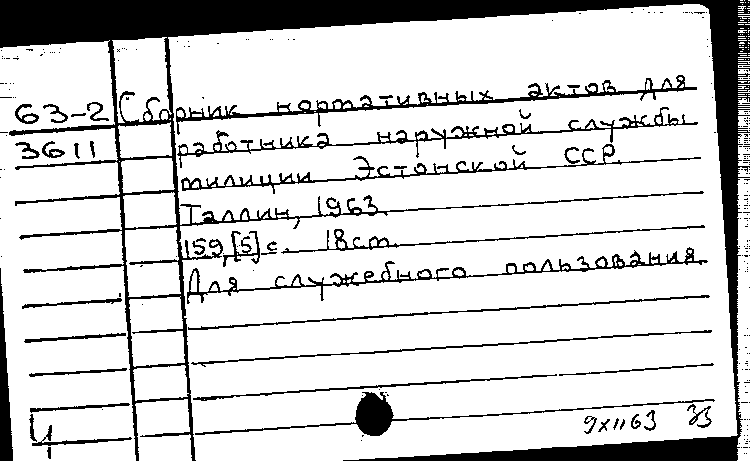 63-2 Сборник нормативных актов для
3611 работника наружной службы
милиции Эстонской ССР.
Таллин, 1963.
159,[5] с. 18см.
Для служебного пользования.
Ч
9XII63